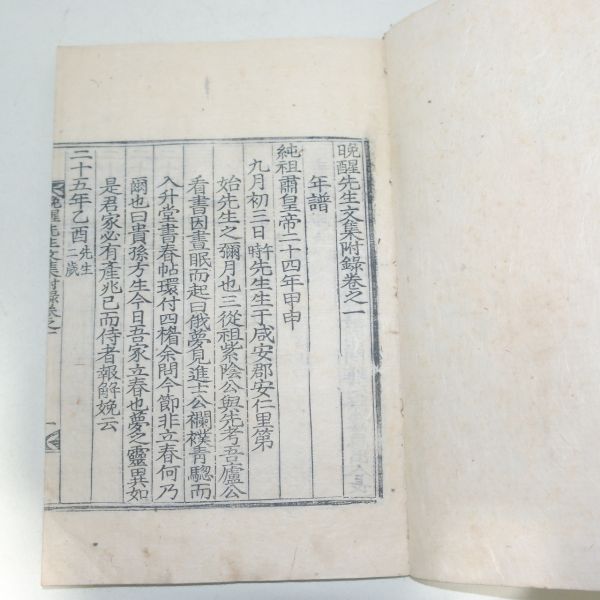 晩醒先生文集附錄卷之一
年譜
純祖肅皇帝二十四年甲申
九月初三日時先生生于咸安郡安仁里第
始先生之彌月也三從祖紫陰公與先考吾廬公
看書因晝眠而起曰俄夢見進士公襴襆青驄而
入升堂書春帖環付四楣余問今節非立春何乃
爾也曰貴孫方生今日吾家立春也夢之靈異如
是君家必有產兆已而侍者報解娩云
二十五年乙酉先生二歲
晩醒先生文集附錄卷之一
一